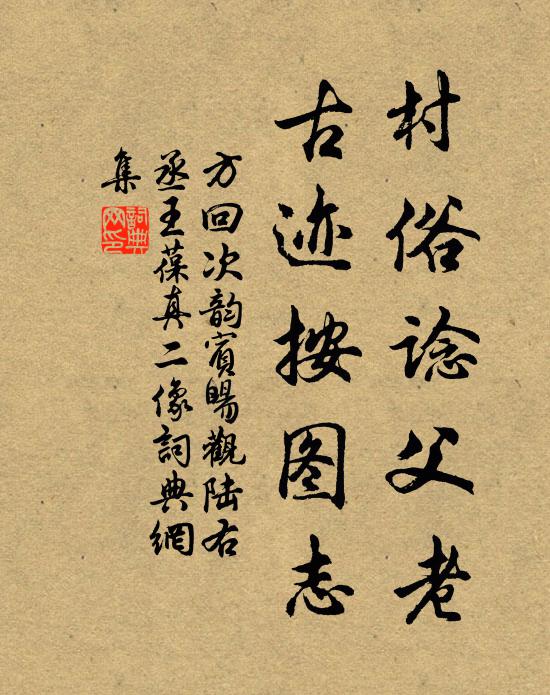 村俗谂父老
古迹按图志
方回次韵賓暘觀陆右
丞王葆真二像詞典網
集
詞典
网印